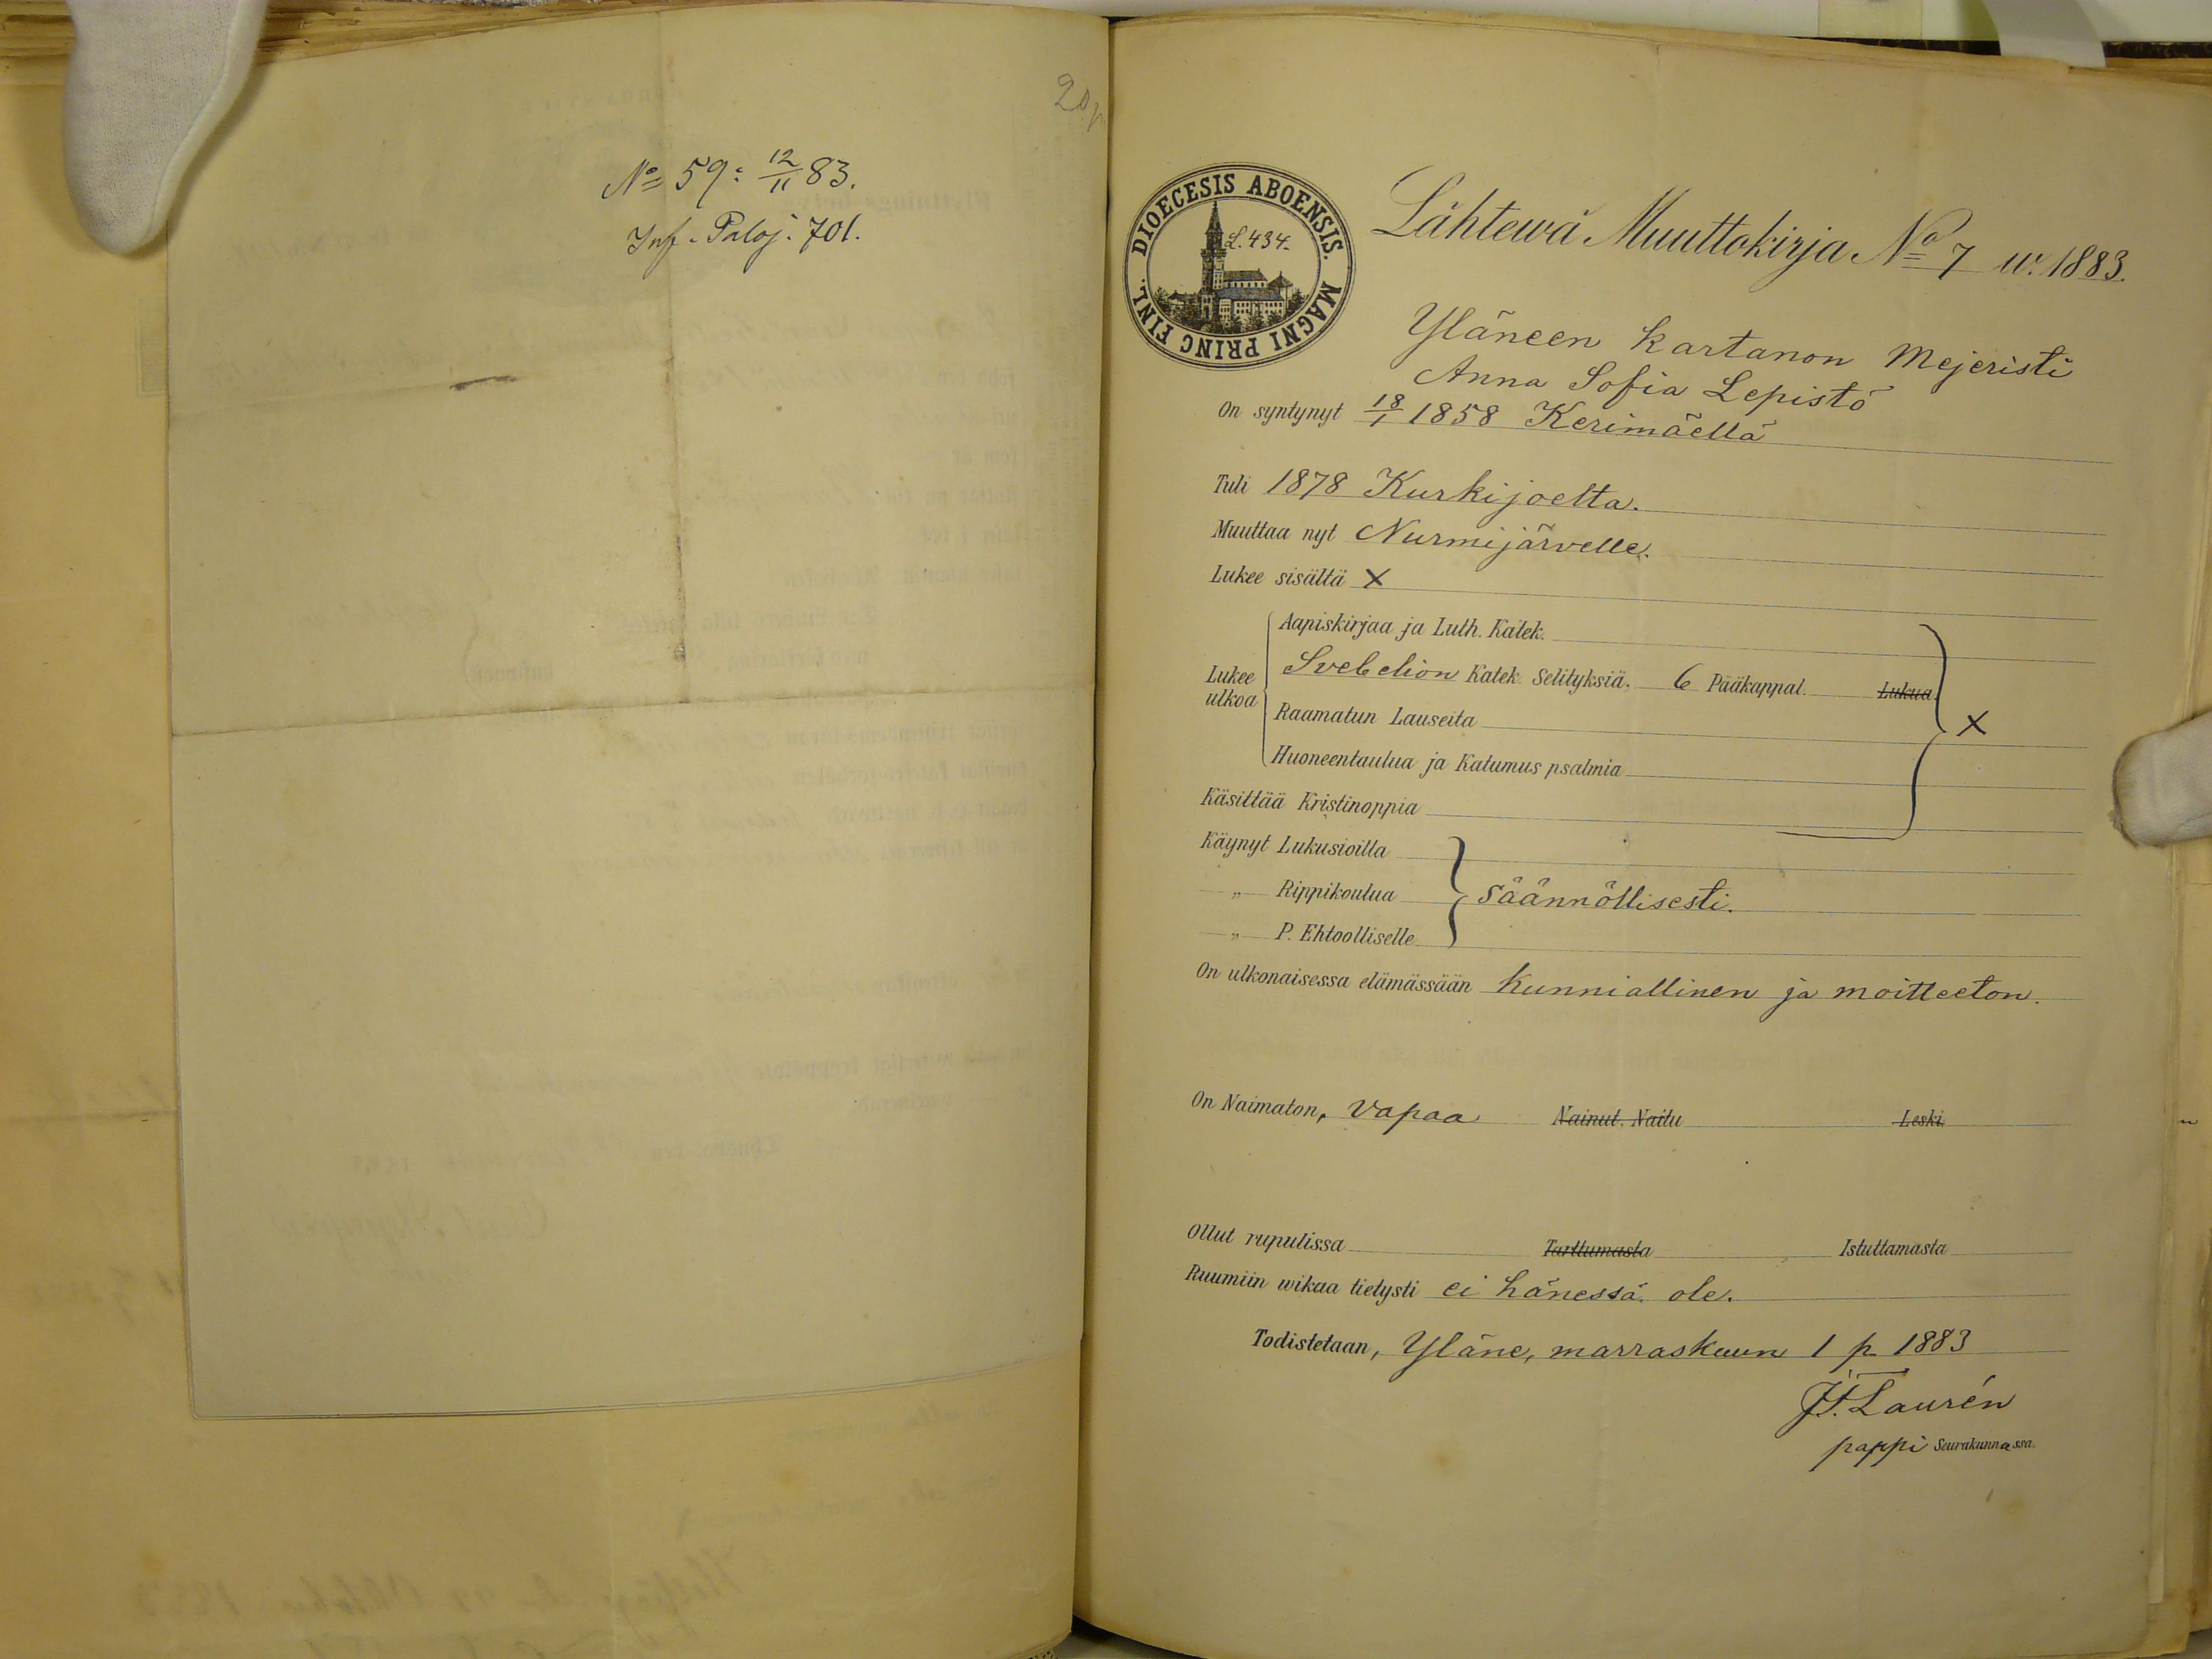 No 59: 12/11 83.
Inf. Paloj. 701.
DIOECESIS ABOENSIS. MAGNI PRINC FINL.
L. 434.
Lähtewä Muuttokirja No 7 w. 1883.
Yläneen kartanon Mejeristi
Anna Sofia Lepistö
On syntynyt 18/1 1858 Kerimäellä
Tuli 1878 Kurkijoelta.
Muuttaa nyt Nurmijärvelle.
Lukee sisältä X
Lukee ulkoa
Aapiskirjaa ja Luth. Katek.
Svebelion Katek. Selityksiä, 6 Pääkappal. Lukua.
Raamatun Lauseita X
Huoneentaulua ja Katumus psalmia
Käsittää Kristinoppia
Käynyt Lukusioilla
„ Rippikoulua säännöllisesti.
„ P. Ehtoolliselle
On ulkonaisessa elämässään kunniallinen ja moitteeton.
On Naimaton, vapaa Nainut. Naitu Leski.
Ollut rupulissa Tarttumasta Istuttamasta
Ruumiin wikaa tietysti ei hänessä ole.
Todistetaan, Yläne, marraskuun 1 p 1883
J. F. Laurén
pappi Seurakunnassa.